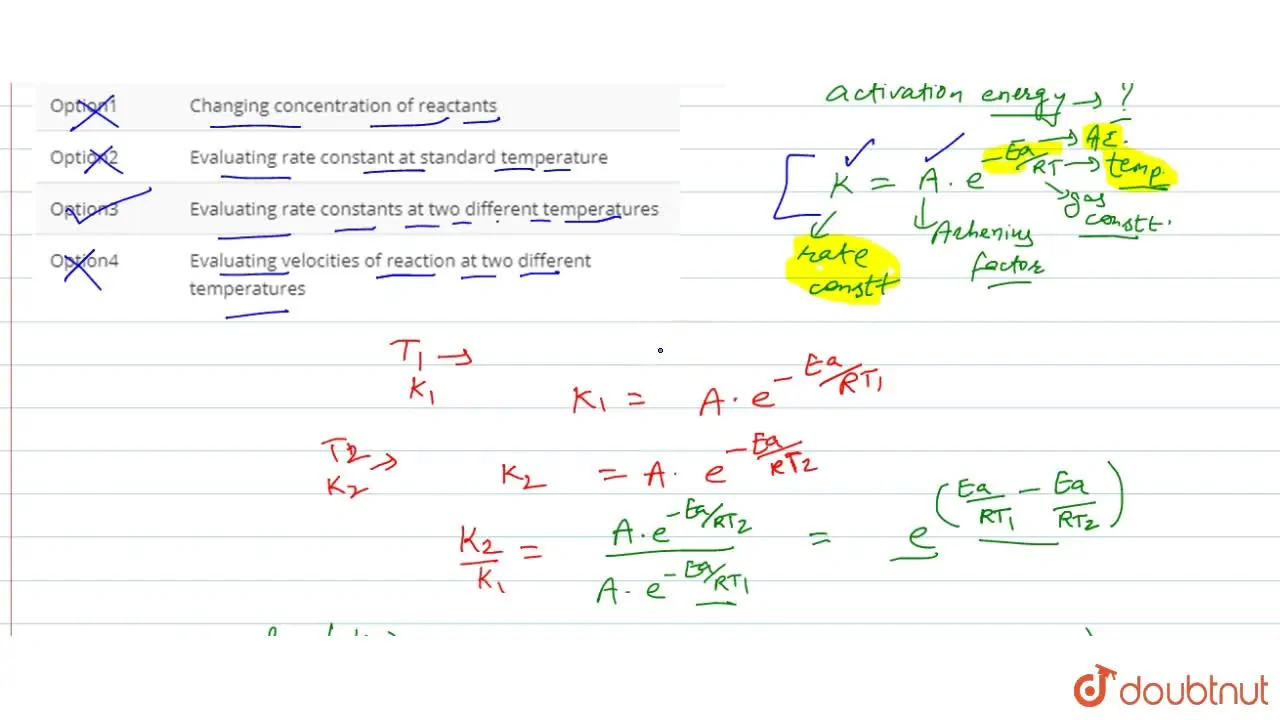 Option1 Changing concentration of reactants
Option2 Evaluating rate constant at standard temperature
Option3 Evaluating rate constants at two different temperatures
Option4 Evaluating velocities of reaction at two different
temperatures
activation energy → ?
K = A . e^-Ea/RT → AE.
→ temp.
gas
constt.
rate
constt
Arhenius
factor
T1 →
K1
K1 = A . e^-Ea/RT1
T2 →
K2
K2 = A . e^-Ea/RT2
K2/K1 = A . e^-Ea/RT2 / A . e^-Ea/RT1 = e^(Ea/RT1 - Ea/RT2)
doubtnut